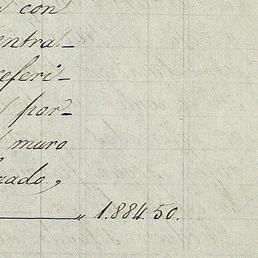 con
entra-
referi-
por-
muro
zado,
" 1.884.50.